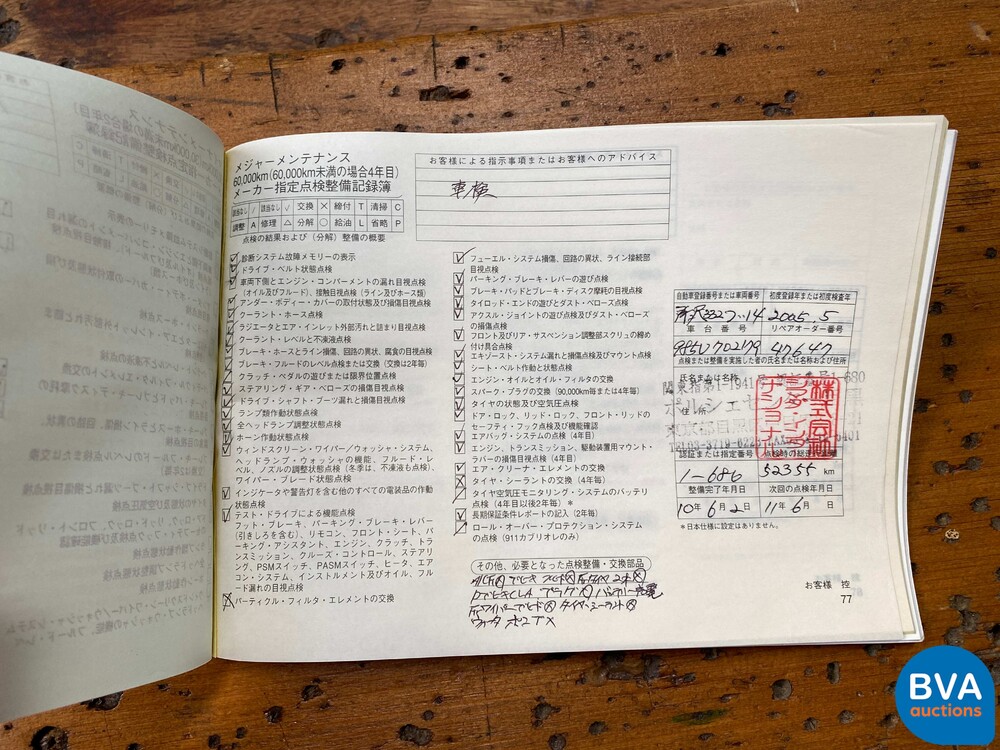 メジャーメンテナンス
60,000km(60,000km未満の場合4年目)
メーカー指定点検整備記録簿
該当なし / 該当なし √ 交換 × 締付 T 清掃 C
調整 A 修理 △ 分解 ○ 給油 L 省略 P
点検の結果および(分解)整備の概要
診断システム故障メモリーの表示
ドライブ・ベルト状態点検
車両下側とエンジン・コンパーメントの漏れ目視点検
(オイル及びフルード)、接触目視点検(ライン及びホース類)
アンダー・ボディー・カバーの取付状態及び損傷目視点検
クーラント・ホース点検
ラジエータとエア・インレット外部汚れと詰まり目視点検
クーラント・レベルと不凍液点検
ブレーキ・ホースとライン損傷、回路の異状、腐食の目視点検
ブレーキ・フルードのレベル点検または交換(交換は2年毎)
クラッチ・ペダルの遊びまたは限界位置点検
ステアリング・ギア・ベローズの損傷目視点検
ドライブ・シャフト・ブーツ漏れと損傷目視点検
ランプ類作動状態点検
全ヘッドランプ調整状態点検
ホーン作動状態点検
ウィンドスクリーン・ワイパー/ウォッシャ・システム、
ヘッドランプ・ウォッシャの機能、フルード・レベ
ル、ノズルの調整状態点検(冬季は、不凍液も点検)、
ワイパー・ブレード状態点検
インジケータや警告灯を含む他のすべての電装品の作動
状態点検
テスト・ドライブによる機能点検
フット・ブレーキ、パーキング・ブレーキ・レバー
(引きしろを含む)、リモコン、フロント・シート、パ
ーキング・アシスタント、エンジン、クラッチ、トラ
ンスミッション、クルーズ・コントロール、ステアリ
ング、PSMスイッチ、PASMスイッチ、ヒータ、エア
コン・システム、インストルメント及びオイル、フル
ード漏れの目視点検
パーティクル・フィルタ・エレメントの交換
お客様による指示事項またはお客様へのアドバイス
車検
フューエル・システム損傷、回路の異状、ライン接続部
目視点検
パーキング・ブレーキ・レバーの遊び点検
ブレーキ・パッドとブレーキ・ディスク摩耗の目視点検
タイロッド・エンドの遊びとダスト・ベローズ点検
アクスル・ジョイントの遊び点検及びダスト・ベローズ
の損傷点検
フロント及びリア・サスペンション調整部スクリュの締め
付け具合点検
エキゾースト・システム漏れと損傷点検及びマウント点検
シート・ベルト作動と状態点検
エンジン・オイルとオイル・フィルタの交換
スパーク・プラグの交換(90,000km毎または4年毎)
タイヤの状態及び空気圧点検
ドア・ロック、リッド・ロック、フロント・リッドの
セーフティ・フック点検及び機能確認
エアバッグ・システムの点検(4年目)
エンジン、トランスミッション、駆動装置用マウント・
ラバーの損傷目視点検(4年目)
エア・クリーナ・エレメントの交換
タイヤ・シーラントの交換(4年毎)
タイヤ空気圧モニタリング・システムのバッテリ
点検(4年目以後2年毎) *
長期保証条件レポートの記入(2年毎)
ロール・オーバー・プロテクション・システム
の点検(911カブリオレのみ)
その他、必要となった点検整備・交換部品
自動車登録番号または車両番号 初度登録年または初度検査年
2005.5
車台番号 リペアオーダー番号
47647
点検または整備を実施した者の氏名または名称および住所
氏名または名称
関東指第1-1941
住所
TEL03-3719-6225
株式会社
認証または指定番号 点検時の総走行距離
1-686 52355 km
整備完了年月日 次回の点検年月日
10年6月2日 11年6月 日
*日本仕様に設定はありません。
お客様 控
77
BVA
auctions